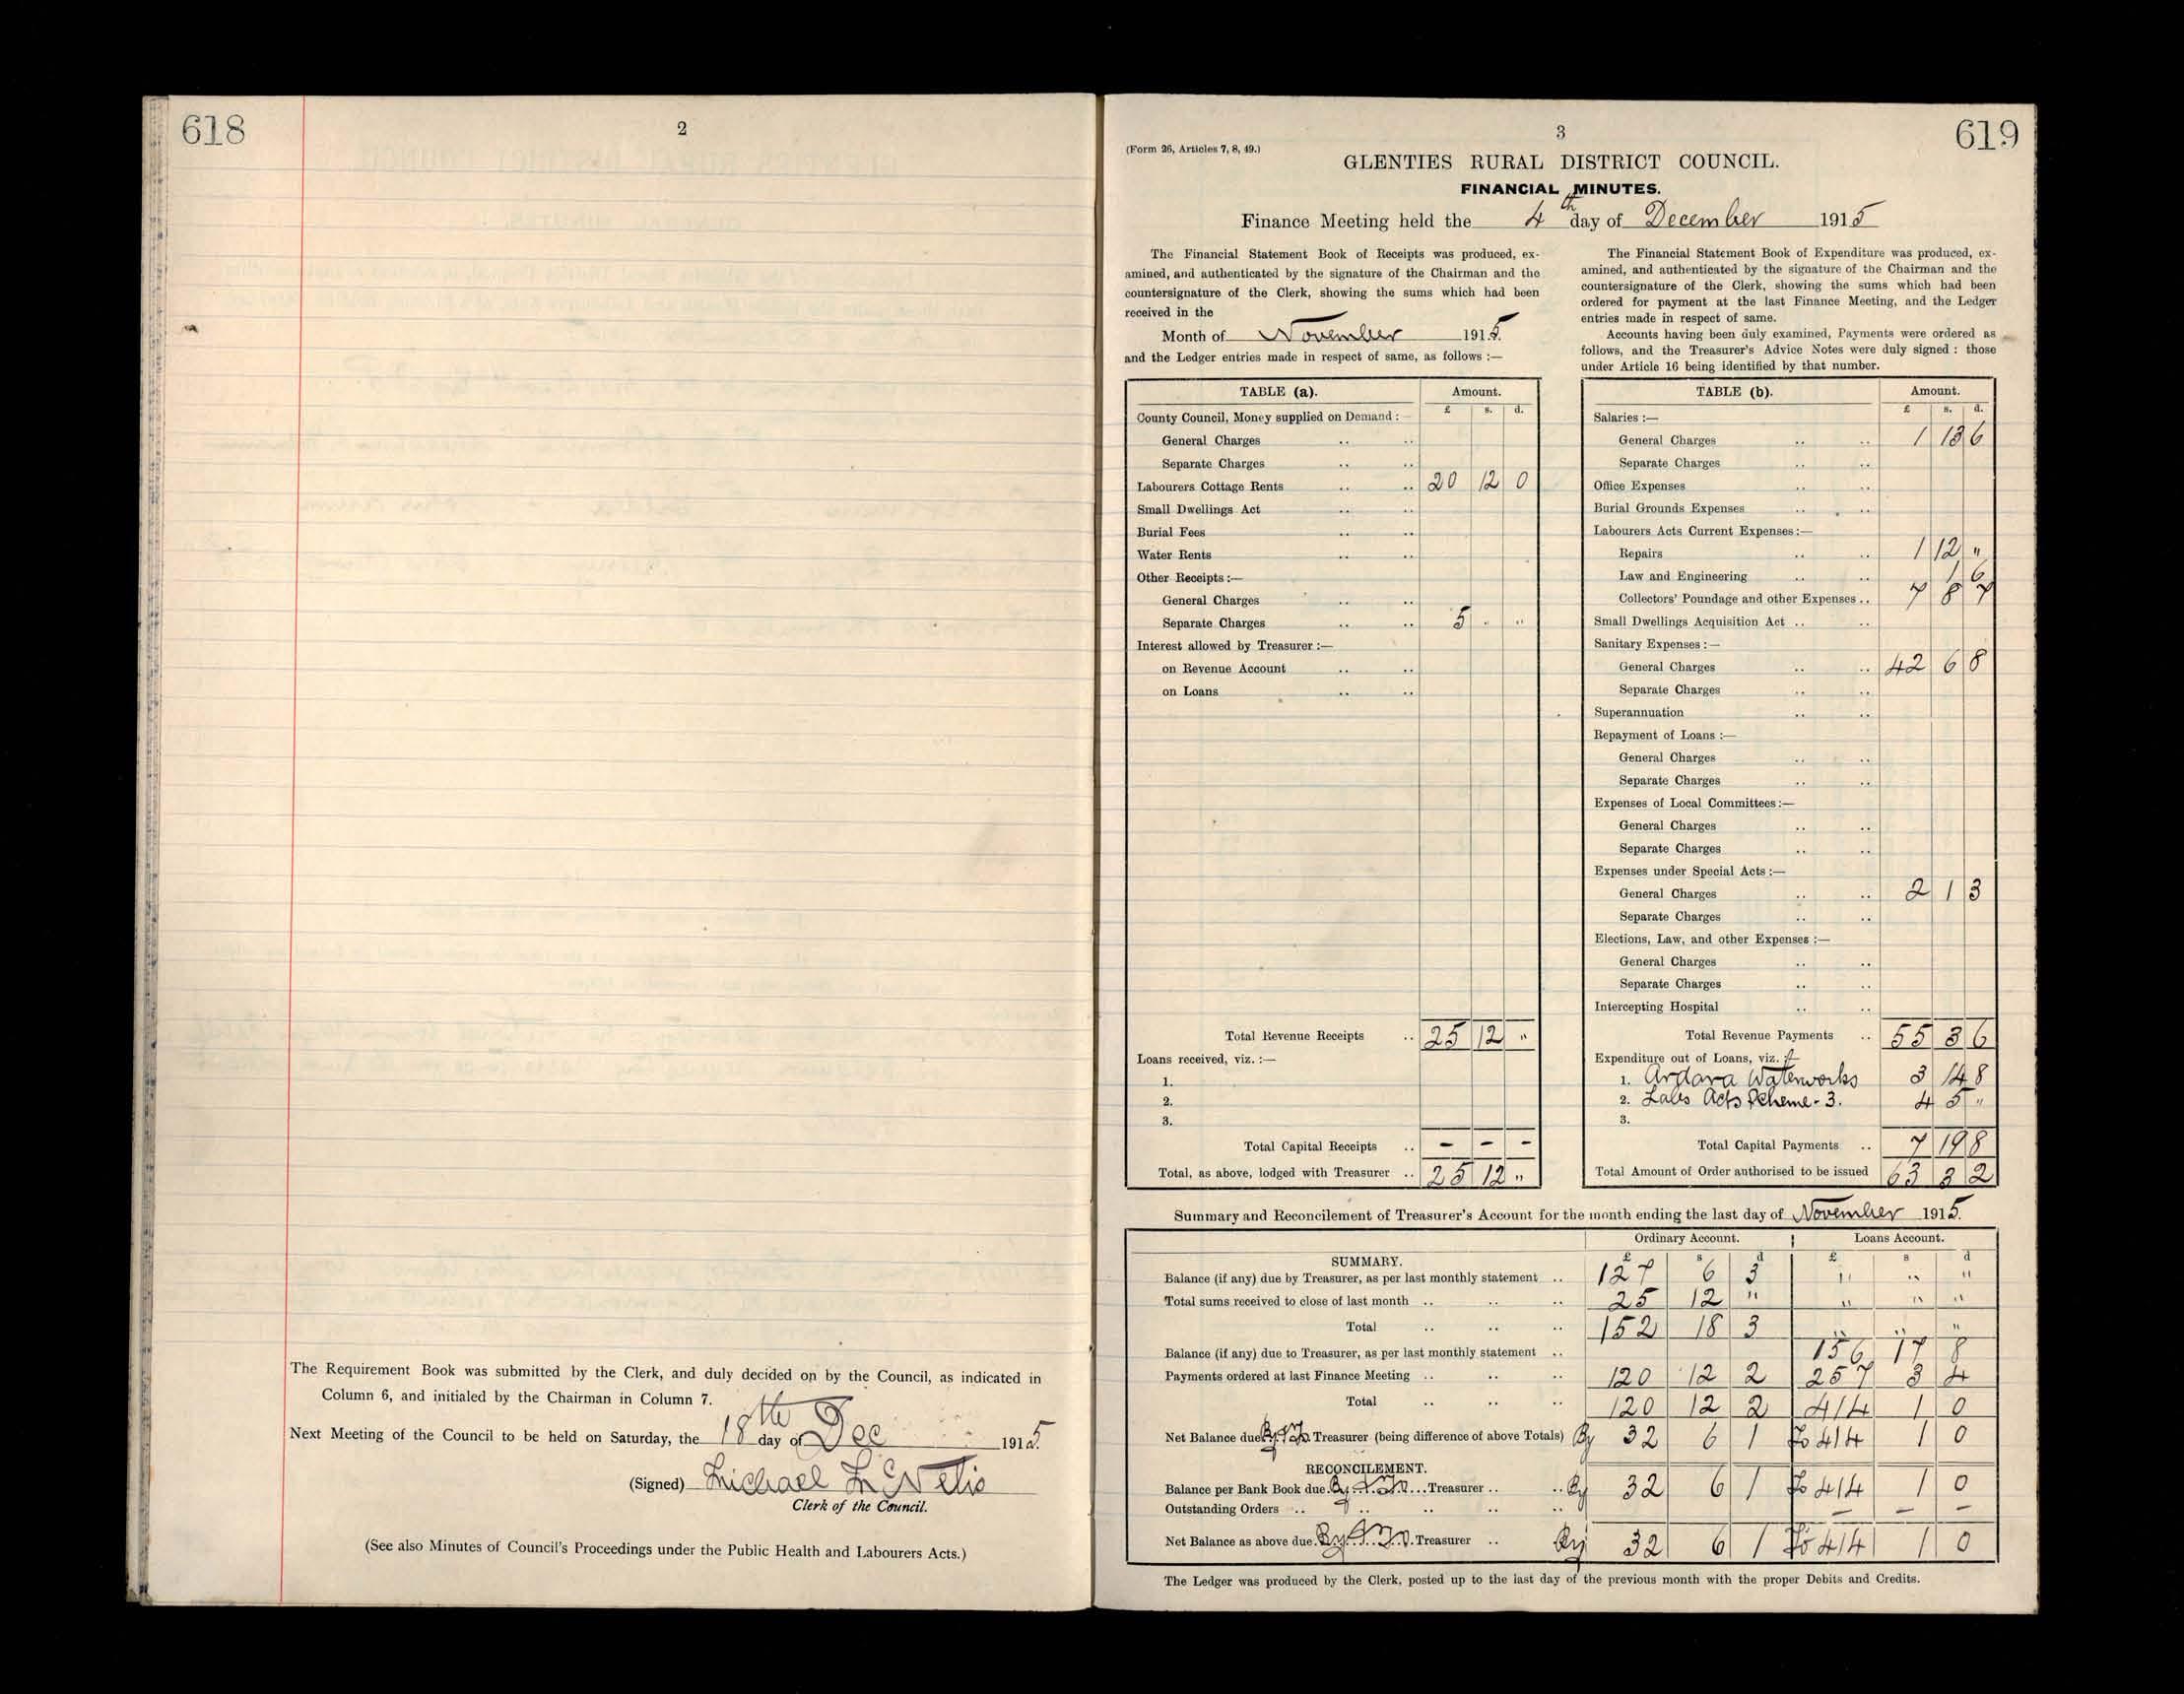 618
2
The Requirement Book was submitted by the Clerk, and duly decided on by the Council, as indicated in
Column 6, and initialed by the Chairman in Column 7.
Next Meeting of the Council to be held on Saturday, the 18th day of Dec 1915.
(Signed) Michael McNelis
Clerk of the Council.
(See also Minutes of Council's Proceedings under the Public Health and Labourers Acts.)
3
619
(Form 26, Articles 7, 8, 49.)
GLENTIES RURAL DISTRICT COUNCIL.
FINANCIAL MINUTES.
Finance Meeting held the 4th day of December 1915
The Financial Statement Book of Receipts was produced, ex-
amined, and authenticated by the signature of the Chairman and the
countersignature of the Clerk, showing the sums which had been
received in the
Month of November 1915.
and the Ledger entries made in respect of same, as follows :—
TABLE (a). Amount.
£ s. d.
County Council, Money supplied on Demand :—
General Charges .. ..
Separate Charges .. ..
Labourers Cottage Rents .. .. 20 12 0
Small Dwellings Act .. ..
Burial Fees .. ..
Water Rents .. ..
Other Receipts :—
General Charges .. ..
Separate Charges .. .. 5 " "
Interest allowed by Treasurer :—
on Revenue Account .. ..
on Loans .. ..
Total Revenue Receipts .. 25 12 "
Loans received, viz. :—
1.
2.
3.
Total Capital Receipts .. – – –
Total, as above, lodged with Treasurer .. 25 12 "
The Financial Statement Book of Expenditure was produced, ex-
amined, and authenticated by the signature of the Chairman and the
countersignature of the Clerk, showing the sums which had been
ordered for payment at the last Finance Meeting, and the Ledger
entries made in respect of same.
Accounts having been duly examined, Payments were ordered as
follows, and the Treasurer's Advice Notes were duly signed : those
under Article 16 being identified by that number.
TABLE (b). Amount.
£ s. d.
Salaries :—
General Charges .. .. 1 13 6
Separate Charges .. ..
Office Expenses .. ..
Burial Grounds Expenses .. ..
Labourers Acts Current Expenses :—
Repairs .. .. 1 12 "
Law and Engineering .. .. 1 6
Collectors' Poundage and other Expenses .. 7 8 7
Small Dwellings Acquisition Act .. ..
Sanitary Expenses :—
General Charges .. .. 42 6 8
Separate Charges .. ..
Superannuation .. ..
Repayment of Loans :—
General Charges .. ..
Separate Charges .. ..
Expenses of Local Committees :—
General Charges .. ..
Separate Charges .. ..
Expenses under Special Acts :—
General Charges .. .. 2 1 3
Separate Charges .. ..
Elections, Law, and other Expenses :—
General Charges .. ..
Separate Charges .. ..
Intercepting Hospital .. ..
Total Revenue Payments .. 55 3 6
Expenditure out of Loans, viz. :—
1. Ardara Waterworks 3 14 8
2. Labs Acts Scheme - 3. 4 5 "
3.
Total Capital Payments .. 7 19 8
Total Amount of Order authorised to be issued 63 3 2
Summary and Reconcilement of Treasurer's Account for the month ending the last day of November 1915.
Ordinary Account. Loans Account.
SUMMARY. £ s d £ s d
Balance (if any) due by Treasurer, as per last monthly statement .. 127 6 3 " " "
Total sums received to close of last month .. .. .. 25 12 " " " "
Total .. .. .. 152 18 3 " " "
Balance (if any) due to Treasurer, as per last monthly statement .. 156 17 8
Payments ordered at last Finance Meeting .. .. .. 120 12 2 257 3 4
Total .. .. .. 120 12 2 414 1 0
Net Balance due By & To Treasurer (being difference of above Totals) By 32 6 1 To 414 1 0
RECONCILEMENT.
Balance per Bank Book due By & To Treasurer .. .. By 32 6 1 To 414 1 0
Outstanding Orders .. .. .. .. – – –
Net Balance as above due By & To Treasurer .. By 32 6 1 To 414 1 0
The Ledger was produced by the Clerk, posted up to the last day of the previous month with the proper Debits and Credits.